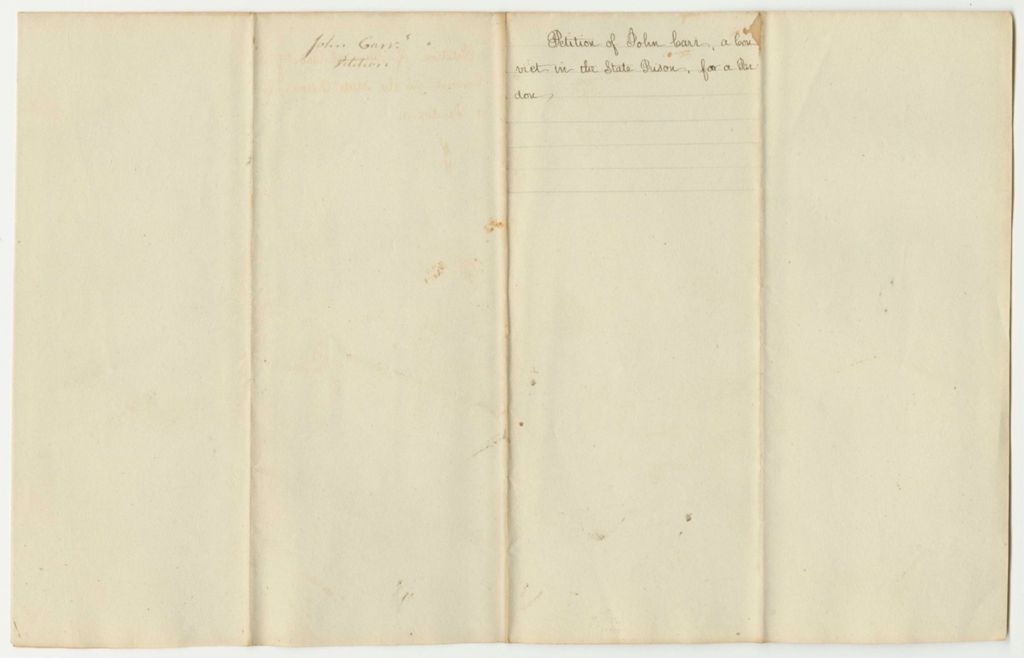 John Carr's
Petition.
Petition of John Carr, a Con
vict in the State Prison, for a Par
don,